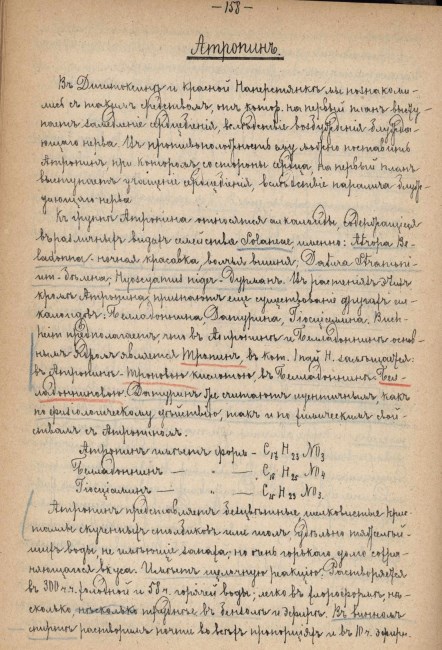 — 158 —
Атропинъ.
Въ Дигитоксинѣ и красной Наперстянкѣ мы познакоми-
лись съ такимъ средствомъ, отъ котор. на первый планъ высту-
паетъ замедленіе сердцебіенія, вслѣдствіе возбужденія блужда-
ющаго нерва. Въ противоположность ему можно поставить
Атропинъ, при которомъ, со стороны сердца, на первый планъ
выступаетъ учащеніе сердцебіенія, вслѣдствіе паралича блуж-
дающаго нерва.
Къ группѣ Атропина относятся алкалойды, содержащіеся
въ различныхъ видахъ семейства Solaneae именно: Atropa Be-
ladonna - ночная красавка волчья вишня, Datura Stramoni-
um - белена, Hyoscyamus niger - Дурманъ. Въ растеніяхъ этихъ
кромѣ Атропина, признаютъ еще существованіе другихъ ал-
калоидовъ: Белладоннина, Датурина, Гіосціамина. Buch-
heim предполагаетъ, что въ Атропинѣ и Белладоннинѣ основ-
нымъ ядромъ является Тропинъ, въ кот. 1 пай H. замѣщается:
въ Атропинѣ - Троповою кислотою, въ Белладоннинѣ - Бел-
ладонниновою. Датуринъ же считаютъ идентичнымъ, какъ
по физіологическому дѣйствію, такъ и по химическимъ свой-
ствамъ съ Атропиномъ.
Атропинъ имѣетъ форм. - C17 H23 NO3
Белладоннинъ — " — C18 H25 NO4
Гіосціаминъ — " — C15 H23 NO3.
Атропинъ представляетъ безцвѣтные, шелковистые крис-
таллы скученныхъ столбиковъ или иголъ, довольно тяжелый-
воды, не имѣющій запаха, но очень горькаго, долго сохра-
няющагося вкуса. Имѣетъ щелочную реакцію. Растворяется
въ 300 ч. холодной и 58 ч. горячей воды; легко въ хлороформѣ, нѣ-
сколько, нѣсколько труднѣе въ бензолѣ и эфирѣ. Въ винномъ
спиртѣ растворимъ почти во всѣхъ пропорціяхъ и въ 10 ч. эфира.